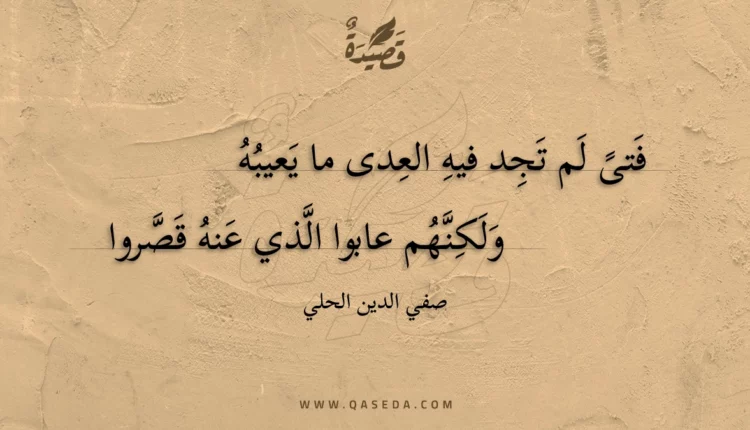 قَصِيدَةٌ
فَتىً لَم تَجِد فيهِ العِدى ما يَعيبُهُ
وَلَكِنَّهُم عابوا الَّذي عَنهُ قَصَّروا
صفي الدين الحلي
WWW.QASEDA.COM